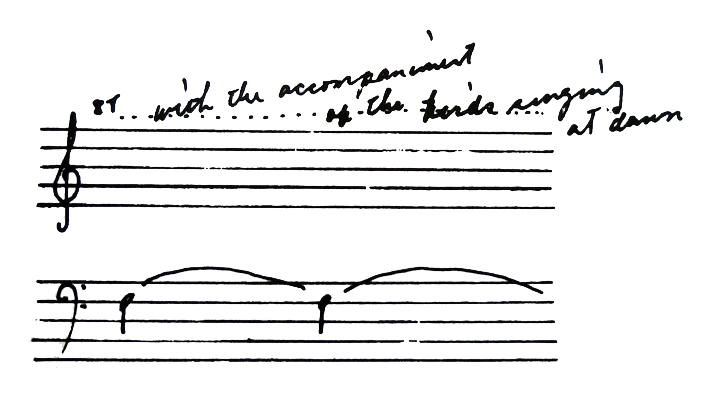 8т with the accompaniment
of the birds singing
at dawn